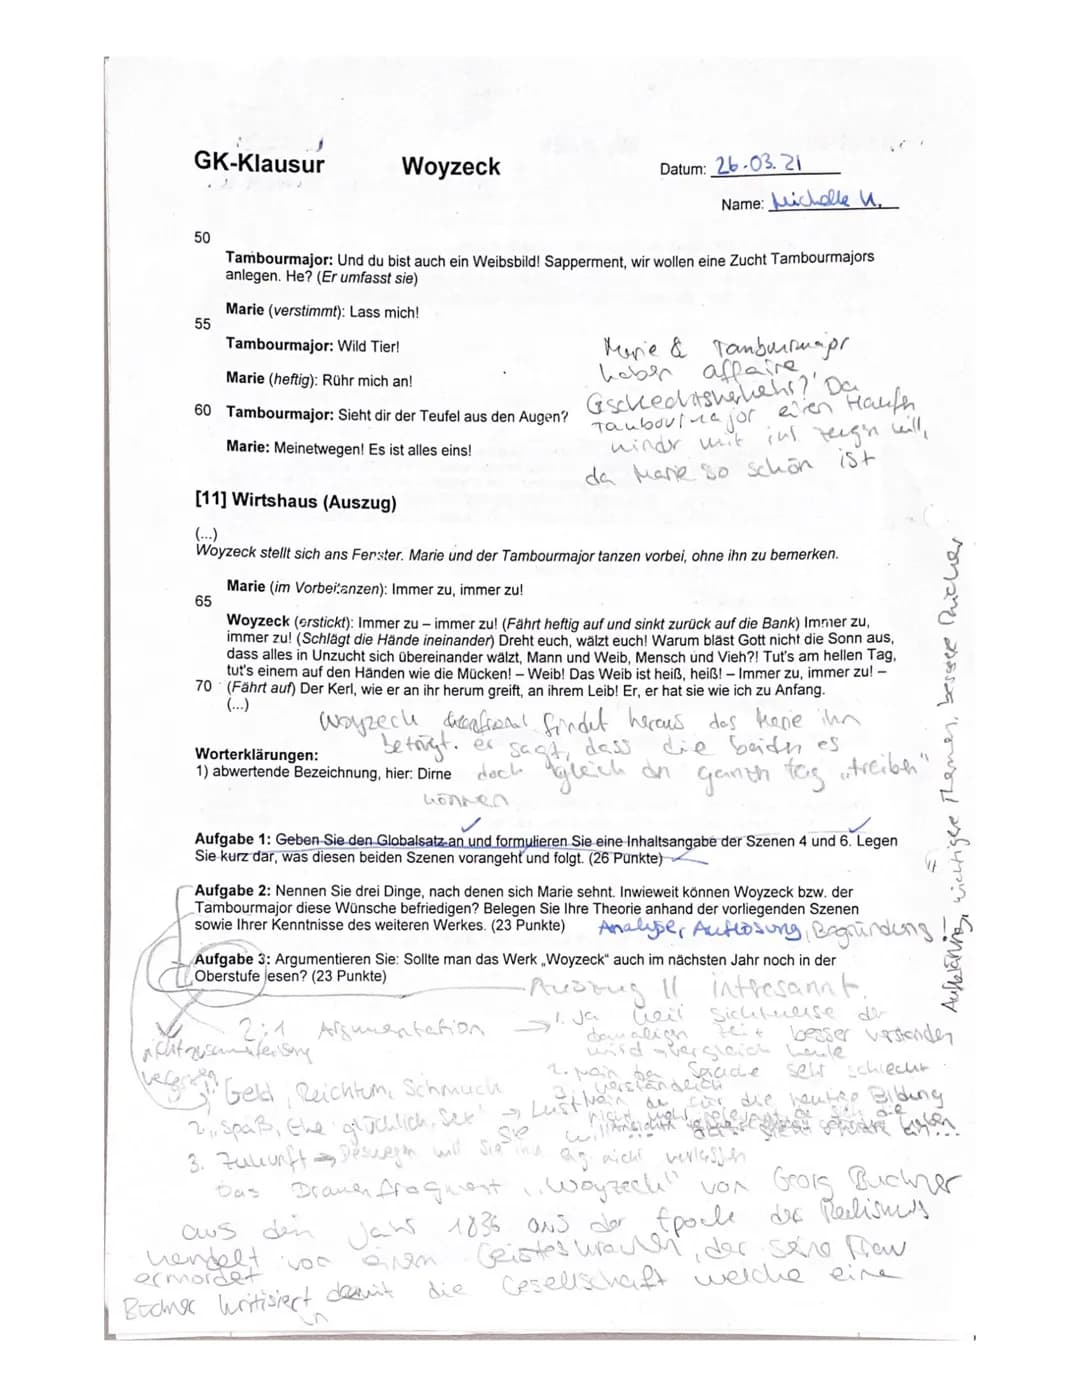 GK-Klausur Woyzeck Datum: 26.03.21
Name: Michelle U.
50
Tambourmajor: Und du bist auch ein Weibsbild! Sapperment, wir wollen eine Zucht Tambourmajors
anlegen. He? (Er umfasst sie)
Marie (verstimmt): Lass mich!
55
Tambourmajor: Wild Tier!
Marie (heftig): Rühr mich an!
60 Tambourmajor: Sieht dir der Teufel aus den Augen?
Marie: Meinetwegen! Es ist alles eins!
Marie & Tambourmajor
haben affaire,
Geschlechtsverkehr? Da
einen Haufen
kinder mit ihr zeugen will,
da Marie so schön ist
[11] Wirtshaus (Auszug)
(...)
Woyzeck stellt sich ans Fenster. Marie und der Tambourmajor tanzen vorbei, ohne ihn zu bemerken.
Marie (im Vorbeitanzen): Immer zu, immer zu!
65
Woyzeck (erstickt): Immer zu – immer zu! (Fährt heftig auf und sinkt zurück auf die Bank) Immer zu,
immer zu! (Schlägt die Hände ineinander) Dreht euch, wälzt euch! Warum bläst Gott nicht die Sonn aus,
dass alles in Unzucht sich übereinander wälzt, Mann und Weib, Mensch und Vieh?! Tut's am hellen Tag,
tut's einem auf den Händen wie die Mücken! – Weib! Das Weib ist heiß, heiß! – Immer zu, immer zu! –
70 (Fährt auf) Der Kerl, wie er an ihr herum greift, an ihrem Leib! Er, er hat sie wie ich zu Anfang.
(...)
Woyzeck findet heraus das Marie ihn
betrügt. er sagt, dass die beiden es
doch gleich den ganzen tag „treiben"
können
Worterklärungen:
1) abwertende Bezeichnung, hier: Dirne
Aufgabe 1: Geben Sie den Globalsatz an und formulieren Sie eine Inhaltsangabe der Szenen 4 und 6. Legen
Sie kurz dar, was diesen beiden Szenen vorangeht und folgt. (26 Punkte)
Aufgabe 2: Nennen Sie drei Dinge, nach denen sich Marie sehnt. Inwieweit können Woyzeck bzw. der
Tambourmajor diese Wünsche befriedigen? Belegen Sie Ihre Theorie anhand der vorliegenden Szenen
sowie Ihrer Kenntnisse des weiteren Werkes. (23 Punkte) Analyse, Auflösung, Begründung!
Aufgabe 3: Argumentieren Sie: Sollte man das Werk „Woyzeck" auch im nächsten Jahr noch in der
Oberstufe lesen? (23 Punkte)
wichtigere Themen, bessere Bücher
Auszug 11 intresannt.
2:1 Argumentation → 1. Ja weil Sichtweise der
damaligen Zeit besser verstanden
wird → vergleich heute
2. Nein da Sprache sehr schlecht
verständlich
3. Nein da für die heutige Bildung
1. Geld, Reichtum, Schmuck
2. Spaß, Ehe glücklich, Sex → Lust
3. Zukunft → Deswegen will sie ihn nicht verlassen
Das Dramenfragment „Woyzeck" von Georg Buchner
aus dem Jahr 1836 aus der Epoche des Realismus
handelt von einem Geisteskranken, der seine Frau
ermordet
kritisiert damit die Gesellschaft welche eine